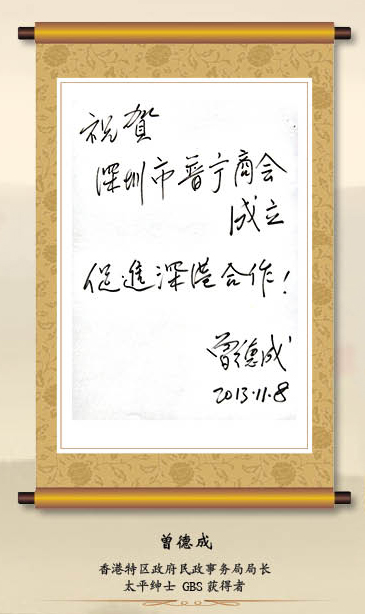 祝賀
深圳市普宁商会
成立
促進深港合作!
曾德成
2013.11.8
曾德成
香港特区政府民政事务局局长
太平绅士 GBS 获得者